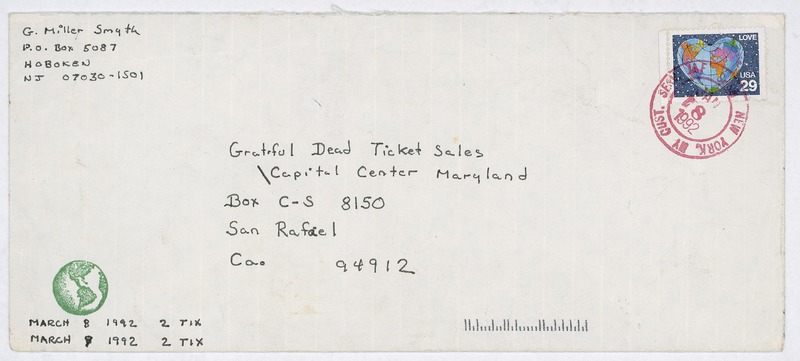 G. Miller Smyth
P.O. Box 5087
HOBOKEN
NJ 07030-1501
LOVE
USA
29
NEW YORK, NY CUST.
1992
Grateful Dead Ticket Sales
\Capital Center Maryland
Box C-S 8150
San Rafael
Ca. 94912
MARCH 8 1992 2 TIX
MARCH 9 1992 2 TIX